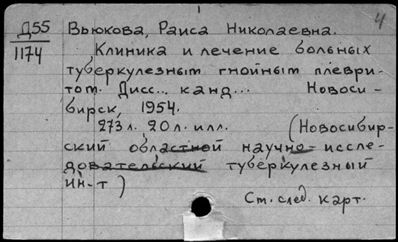 4
Д55 Вьюкова, Раиса Николаевна.
1174 Клиника и лечение больных
туберкулезным гнойным плеври-
том. Дисс... канд... Новоси-
бирск, 1954.
273 л. 20 л. илл. (Новосибир-
ский областной научно-иссле-
довательский туберкулезный
ин-т)
См. след. карт.